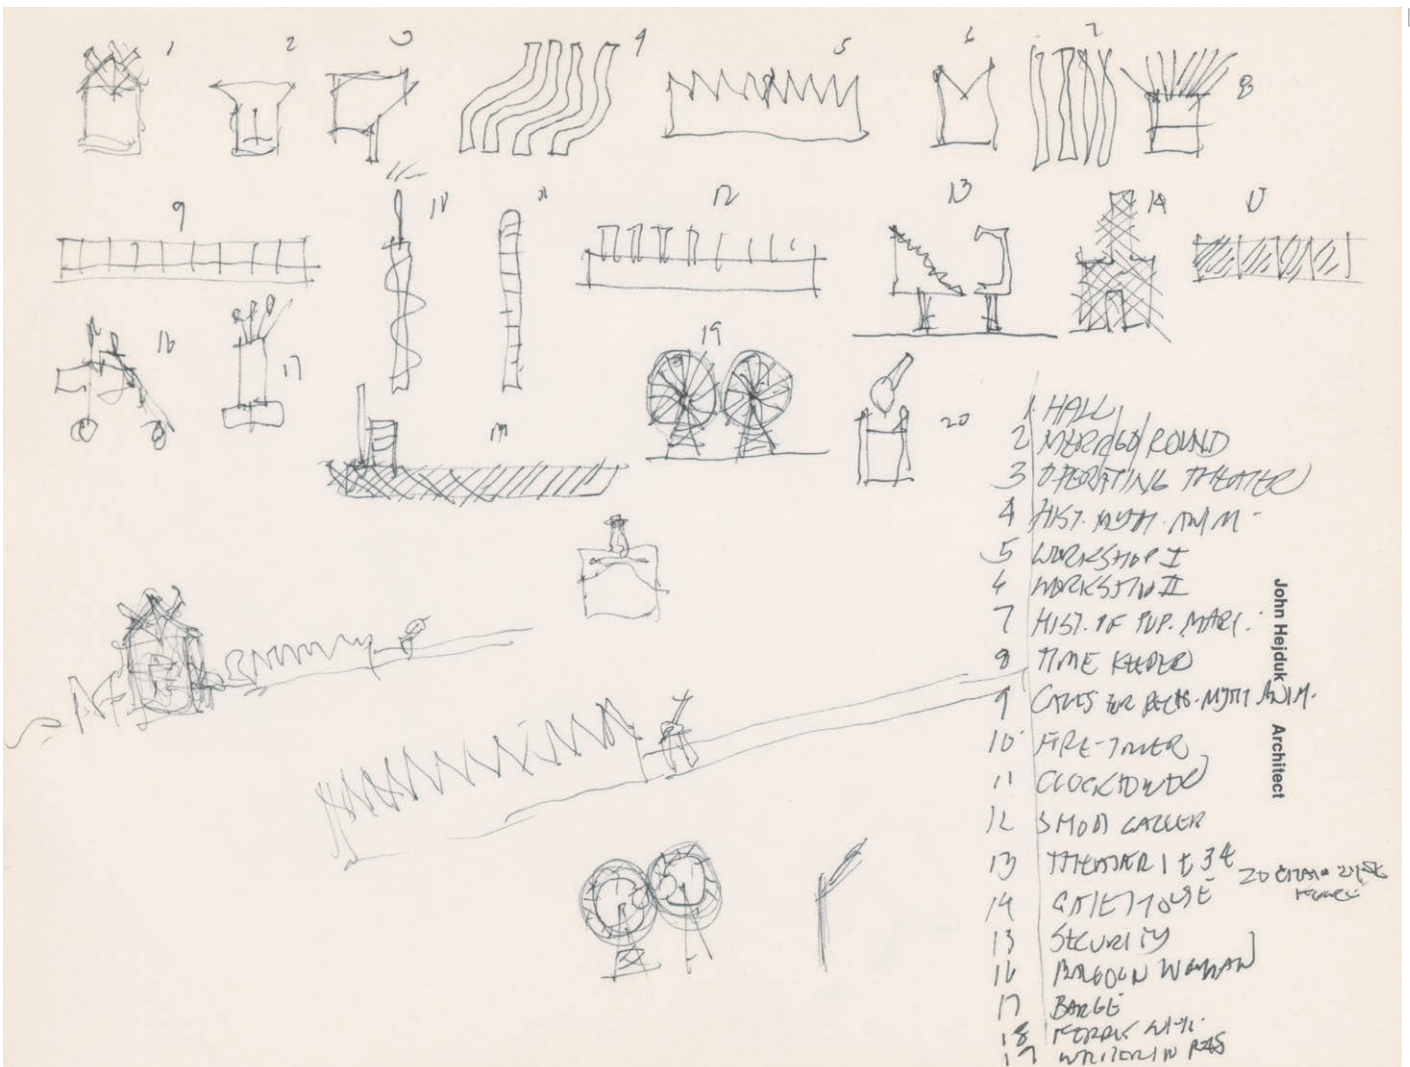 1 2 3 4 5 6 7 8
9 10 11 12 13 14 15
16 17 19
20
1 HALL
2 MERR/GO/ROUND
3 OPERATING THEATER
4 HIST. MYTH. ANIM.
5 WORKSHOP I
6 WORKSHO II
7 HIST. OF PUP. MARI.
8 TIME KEEPER
9 FOR MYTH ANIM.
10 FIRE-TOWER
11 CLOCKTOWER
12
13 THEATER 1
14 GATEHOUSE
13 SECURITY
16 WOMAN
17 BARGE
18
WRITER IN RES
John Hejduk Architect